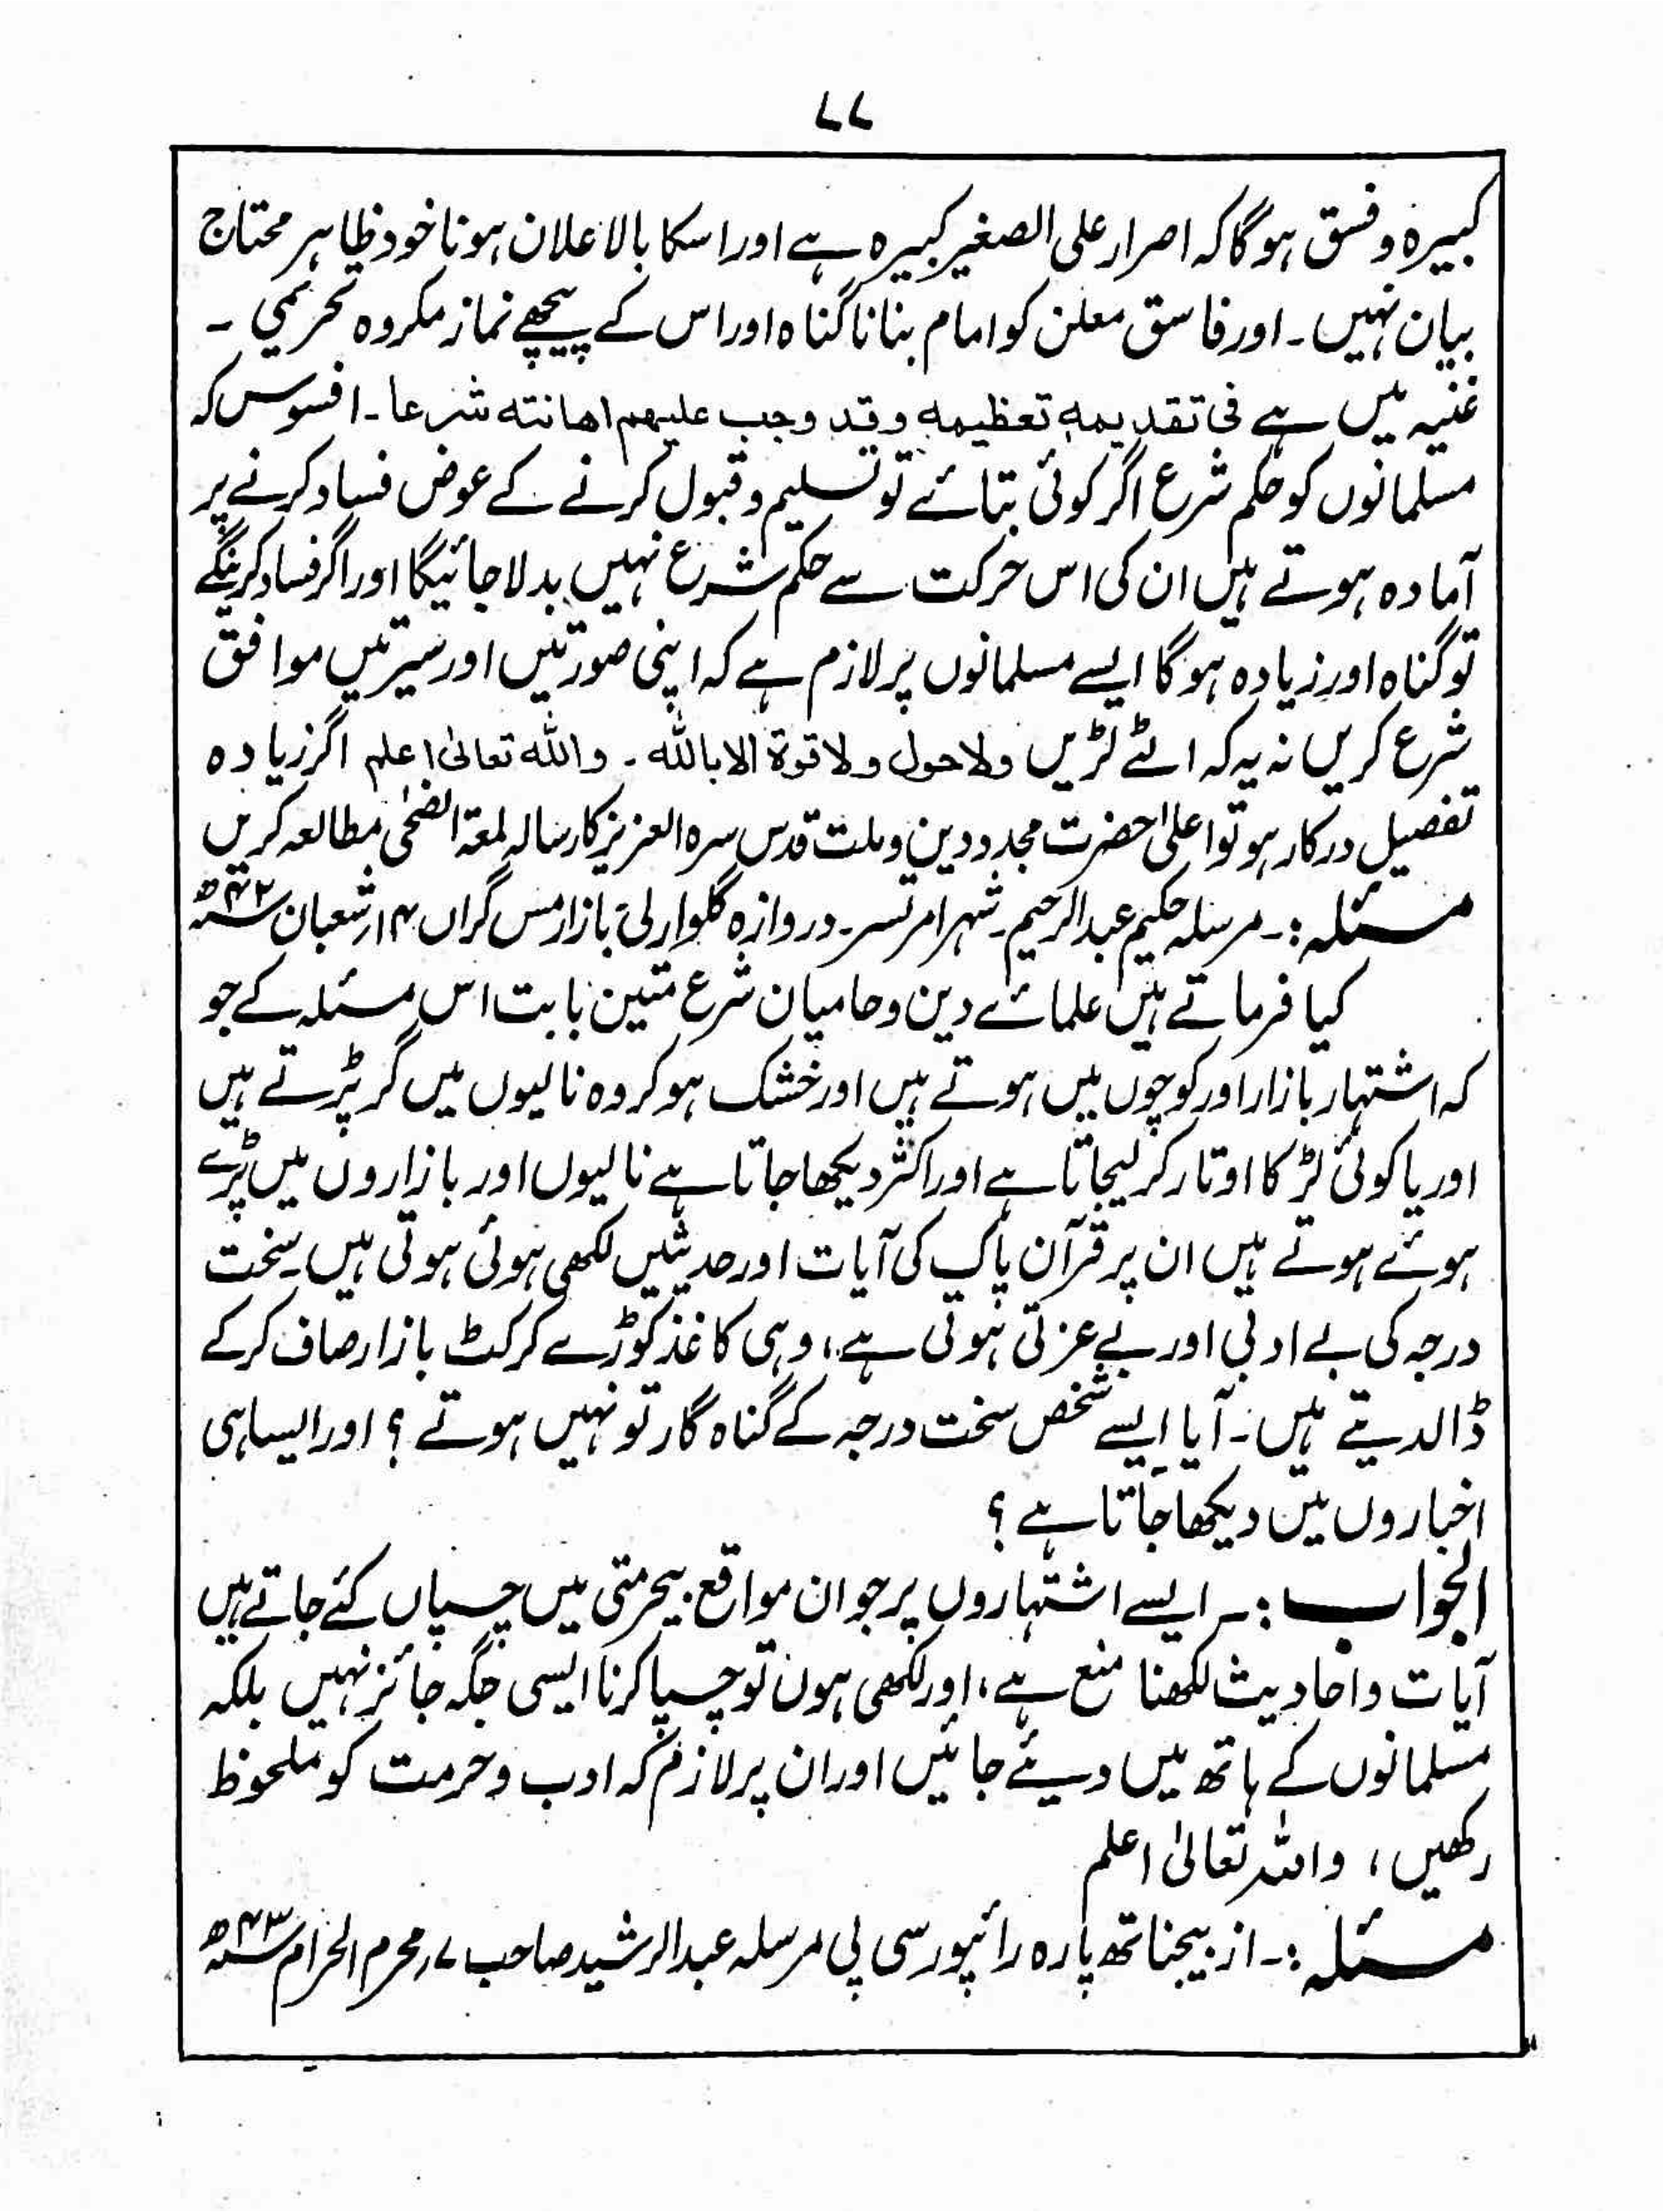 ۷۷
کبیرہ و فسق ہوگا کہ اصرار علی الصغیر کبیرہ ہے اور اسکا بالاعلان ہونا خود ظاہر محتاج
بیان نہیں ۔ اور فاسق معلن کو امام بنانا گناہ اور اس کے پیچھے نماز مکروہ تحریمی ۔
غنیہ میں ہے فی تقدیمہ تعظیمہ وقد وجب علیہم اھانتہ شرعا ۔ افسوس کہ
مسلمانوں کو حکم شرع اگر کوئی بتائے تو تسلیم و قبول کرنے کے عوض فساد کرنے پر
آمادہ ہوتے ہیں ان کی اس حرکت سے حکم شرع نہیں بدلا جائیگا اور اگر فساد کرینگے
تو گناہ اور زیادہ ہوگا ایسے مسلمانوں پر لازم ہے کہ اپنی صورتیں اور سیرتیں موافق
شرع کریں نہ یہ کہ الٹے لڑیں ولا حول ولا قوۃ الا باللہ ۔ واللہ تعالیٰ اعلم اگر زیادہ
تفصیل درکار ہو تو اعلیٰ حضرت مجدد دین و ملت قدس سرہ العزیز کا رسالہ لمعۃ الضحیٰ مطالعہ کریں
مسئلہ :۔ مرسلہ حکیم عبدالرحیم ۔ شہر امرتسر ۔ دروازہ گلوالی بازار مس گراں ۱۴ شعبان ۴۲ھ
کیا فرماتے ہیں علمائے دین و حامیان شرع متین بابت اس مسئلہ کے جو
کہ اشتہار بازار اور کوچوں میں ہوتے ہیں اور خشک ہو کر وہ نالیوں میں گر پڑتے ہیں
اور یا کوئی لڑکا اوتار کر لیجاتا ہے اور اکثر دیکھا جاتا ہے نالیوں اور بازاروں میں پڑے
ہوئے ہوتے ہیں ان پر قرآن پاک کی آیات اور حدیثیں لکھی ہوئی ہوتی ہیں ۔ سخت
درجہ کی بے ادبی اور بے عزتی ہوتی ہے، وہی کاغذ کوڑے کرکٹ بازار صاف کرکے
ڈالدیتے ہیں ۔ آیا ایسے شخص سخت درجہ کے گناہ گار تو نہیں ہوتے ؟ اور ایسا ہی
اخباروں میں دیکھا جاتا ہے ؟
الجواب :۔ ایسے اشتہاروں پر جو ان مواقع بیحرمتی میں چسپاں کئے جاتے ہیں
آیات و احادیث لکھنا منع ہے، اور لکھی ہوں تو چسپا کرنا ایسی جگہ جائز نہیں بلکہ
مسلمانوں کے ہاتھ میں دیئے جائیں اور ان پر لازم کہ ادب و حرمت کو ملحوظ
رکھیں، واللہ تعالیٰ اعلم
مسئلہ :۔ از بیجناتھ پارہ رائپور سی پی مرسلہ عبدالرشید صاحب ۷ محرم الحرام ۴۳ھ